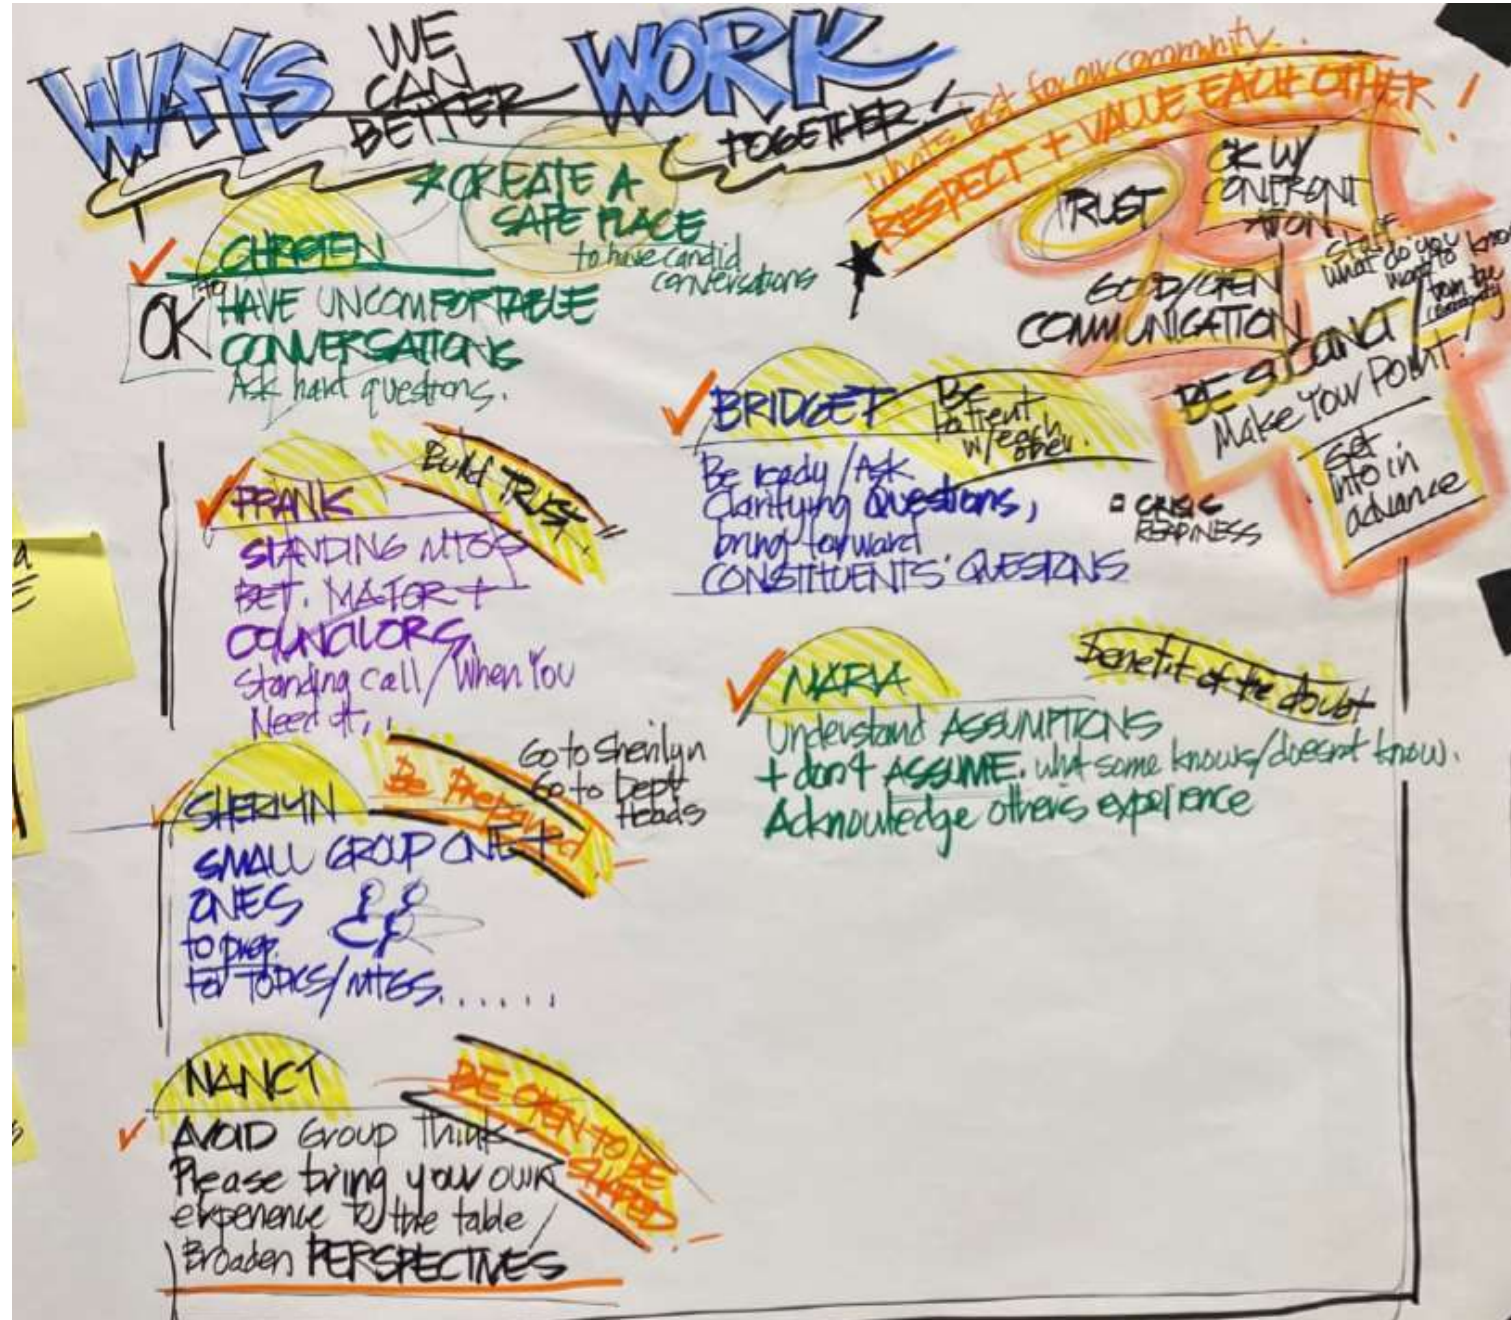 WAYS WE CAN BETTER WORK TOGETHER!
what's best for our community...
RESPECT + VALUE EACH OTHER!
* CREATE A
SAFE PLACE
to have candid
conversations
TRUST
OK W/
CONFRONT
ATION
GOOD/OPEN
COMMUNICATION
Staff
What do you
want to know
from the
BE SUCCINCT/
Make Your Point!
Get
Info in
advance
OK
HAVE UNCOMFORTABLE
CONVERSATIONS
Ask hard questions.
FRANK
Build TRUST
STANDING MTGS
BET. MAYOR +
COUNCILORS
Standing call/When You
Need it,..
SHERILYN
Be Prepared
Go to Sherilyn
Go to Dept
Heads
SMALL GROUP ONE +
ONES
to prep.
for TOPICS/MTGS.......
NANCY
BE OPEN TO BE
SHAPED
AVOID Group Think -
Please bring your own
experience to the table/
Broaden PERSPECTIVES
BRIDGET
Be
Patient
w/each
other.
Be ready/Ask
Clarifying Questions,
bring forward
CONSTITUENTS' QUESTIONS
CRISIS
READINESS
MARIA
Benefit of the doubt
Understand ASSUMPTIONS
+ don't ASSUME. what some knows/doesn't know.
Acknowledge others experience